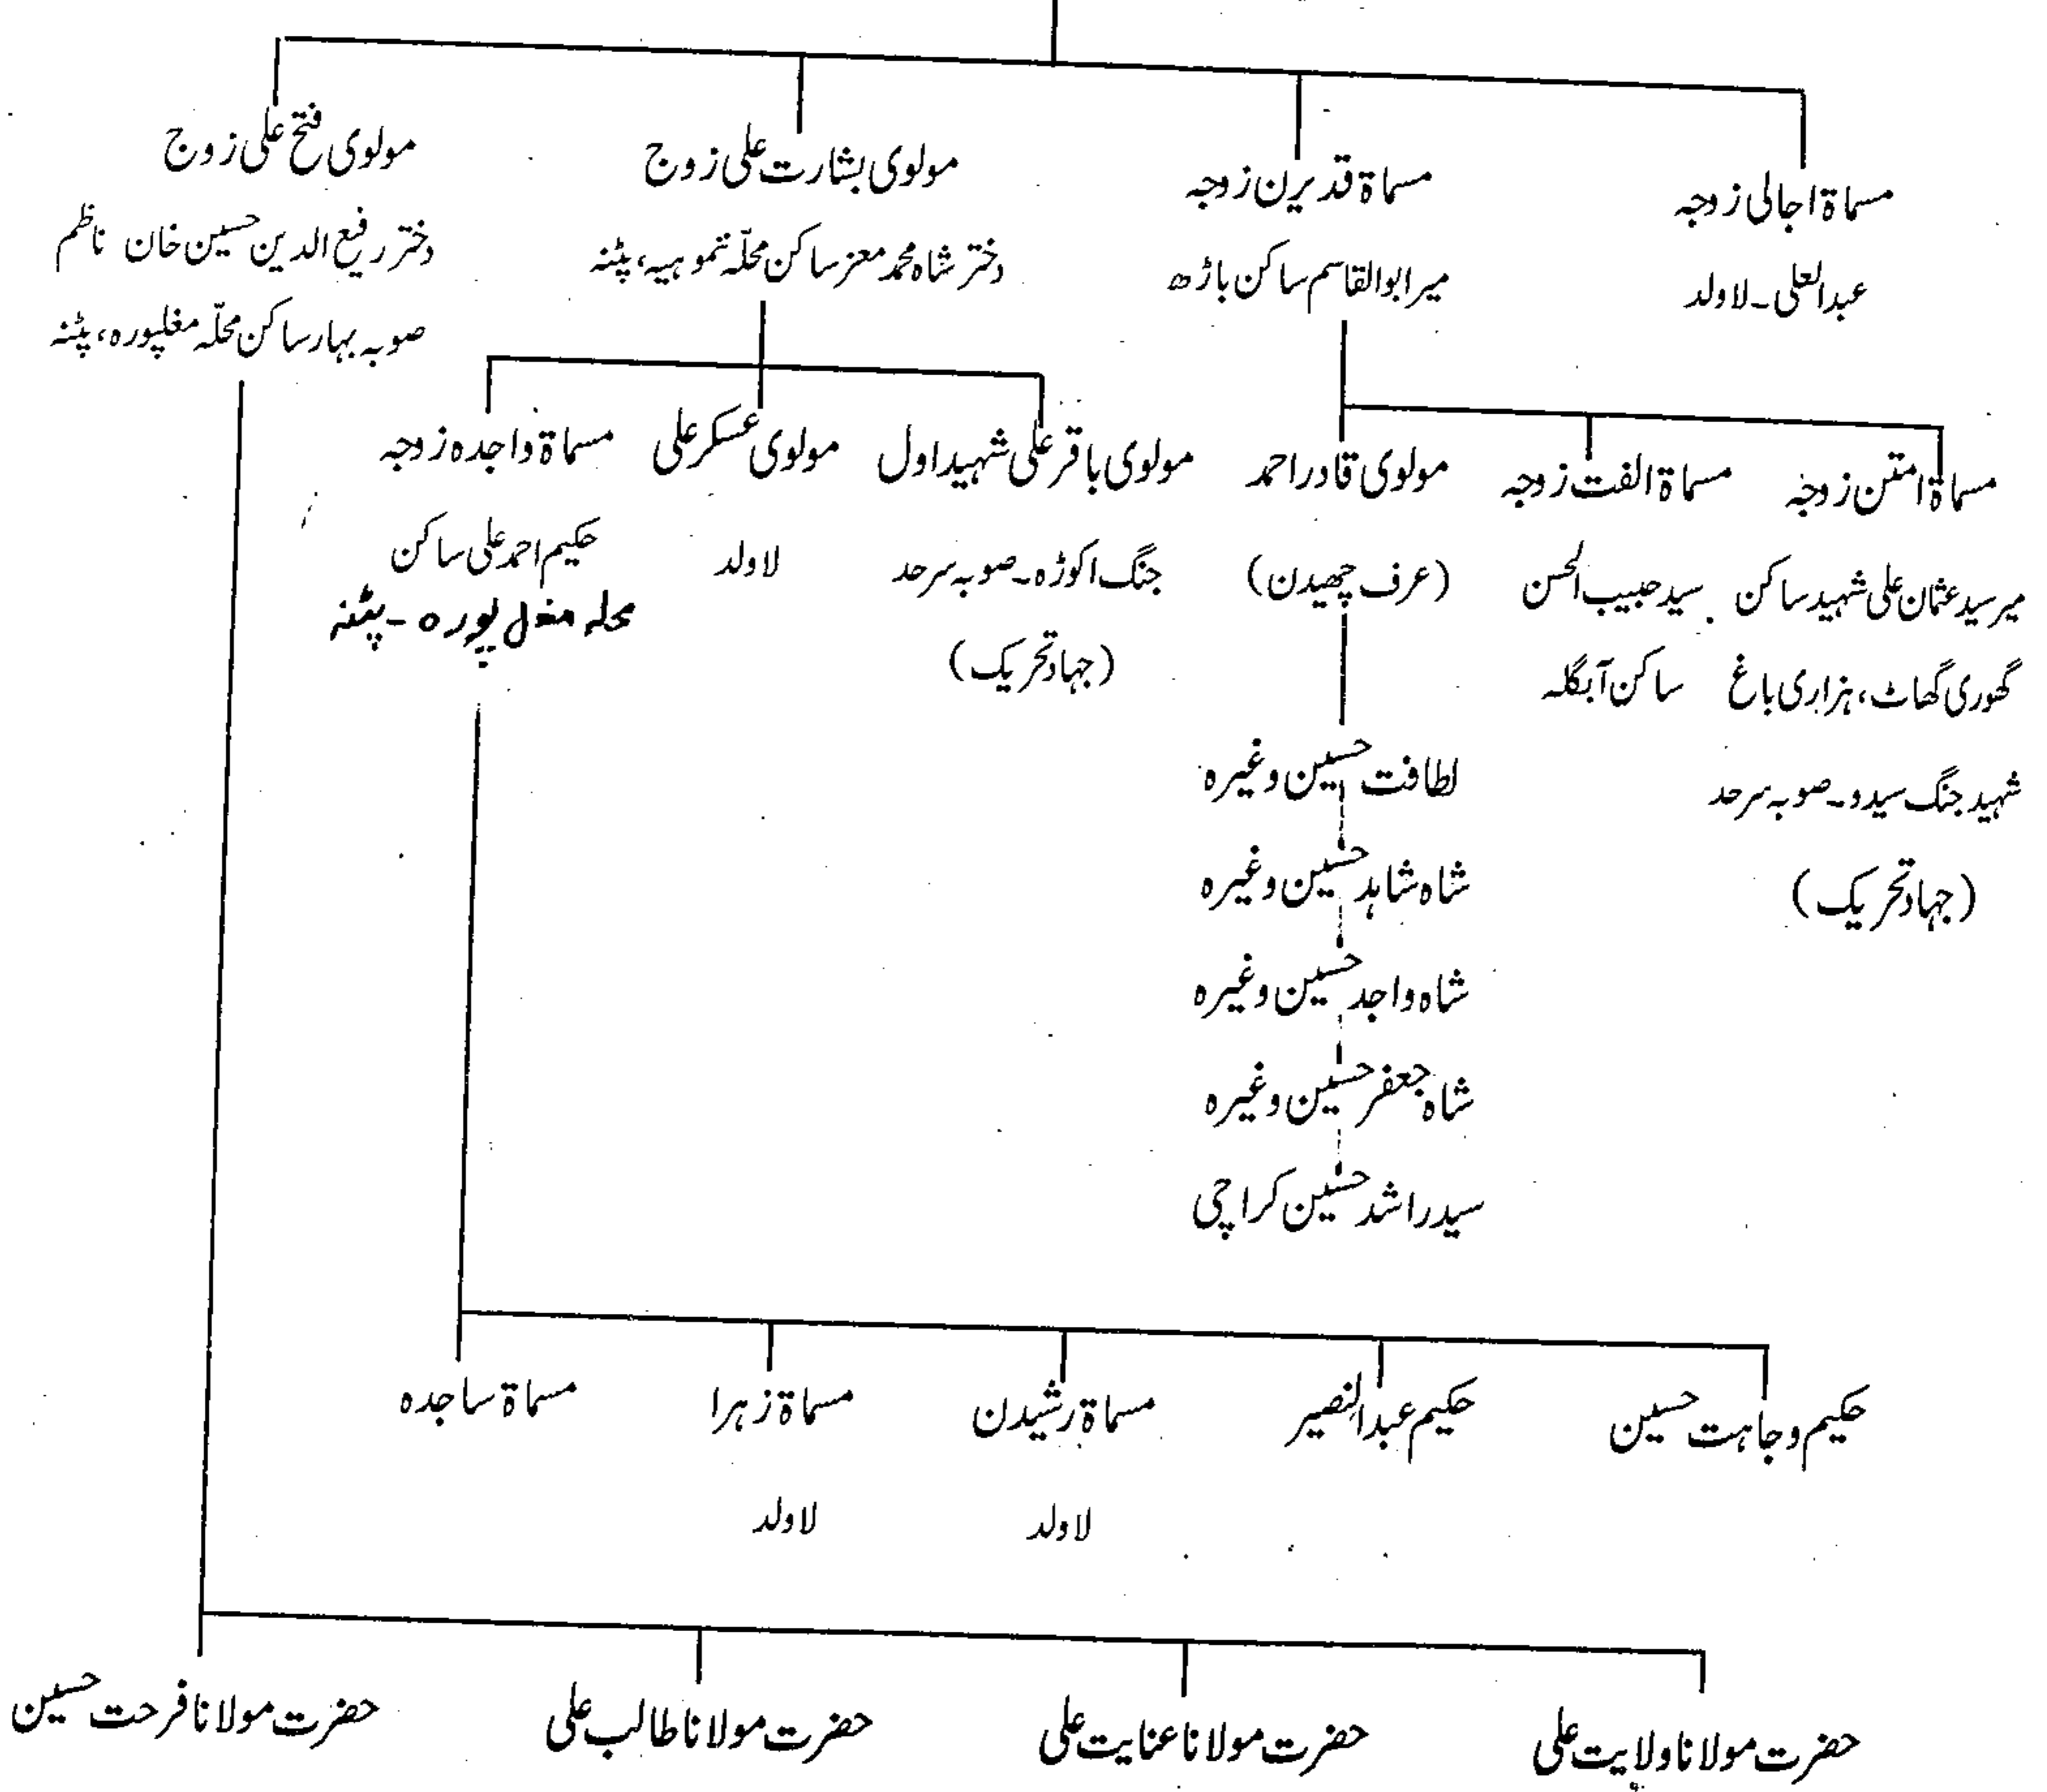 مسماۃ اجالی زوجہ
عبدالعلی۔لاولد
مسماۃ قدیرن زوجہ
میر ابوالقاسم ساکن باڑھ
مولوی بشارت علی زوج
دختر شاہ محمد معز ساکن محلّہ نموہیہ، پٹنہ
مولوی فتح علی زوج
دختر رفیع الدین حسین خان ناظم
صوبہ بہار ساکن محلّہ مغلپورہ، پٹنہ
مسماۃ امتن زوجہ
میر سید عثمان علی شہید ساکن
گھوری گھاٹ، ہزاری باغ
شہید جنگ سیدو۔صوبہ سرحد
(جہاد تحریک)
مسماۃ الفت زوجہ
سید حبیب الحسن
ساکن آبگلہ
مولوی قادر احمد
(عرف چھیدن)
لطافت حسین وغیرہ
شاہ شاہد حسین وغیرہ
شاہ واجد حسین وغیرہ
شاہ جعفر حسین وغیرہ
سید راشد حسین کراچی
مولوی باقر علی شہید اول
جنگ اکوڑہ۔صوبہ سرحد
(جہاد تحریک)
مولوی عسکر علی
لاولد
مسماۃ واجدہ زوجہ
حکیم احمد علی ساکن
محلہ مغل پورہ - پٹنہ
حکیم وجاہت حسین
حکیم عبدالنصیر
مسماۃ رشیدن
لاولد
مسماۃ زہرا
لاولد
مسماۃ ساجدہ
حضرت مولانا ولایت علی
حضرت مولانا عنایت علی
حضرت مولانا طالب علی
حضرت مولانا فرحت حسین